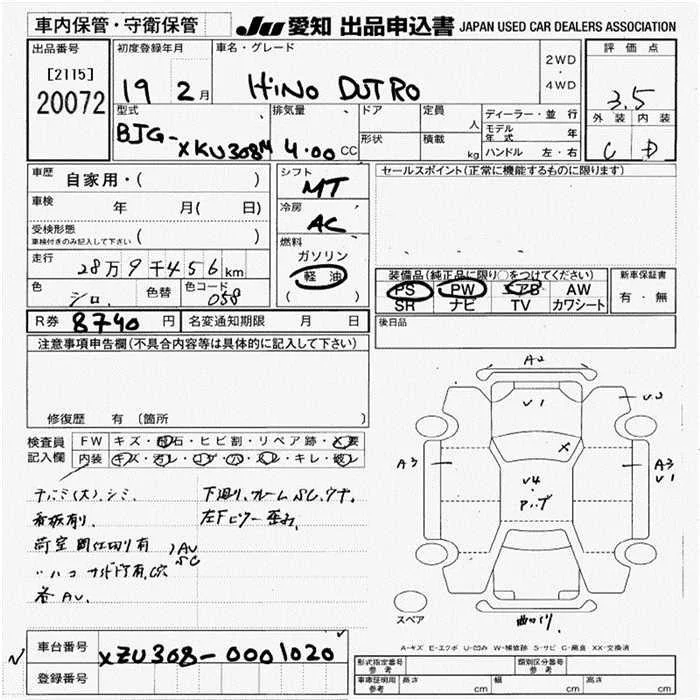 車内保管・守衛保管
JU 愛知 出品申込書 JAPAN USED CAR DEALERS ASSOCIATION
出品番号
[2115]
20072
初度登録年月
19 2月
車名・グレード
HINO DUTRO
2WD
・
4WD
評価点
3.5
外装 内装
C D
型式
BJG-
XKU308M
排気量
4.00 CC
ドア
形状
定員
人
積載
kg
ディーラー・並行
モデル年式 年
ハンドル 左・右
車歴
自家用・( )
車検
年 月( 日)
受検形態
車検付きのみ記入して下さい ( )
走行
28万9千456km
色
シロ
色替
色コード
058
シフト
MT
冷房
AC
燃料
ガソリン
軽油
( )
セールスポイント(正常に機能するものに限ります)
装備品(純正品に限り○をつけてください)
PS PW エアB AW
SR ナビ TV カワシート
新車保証書
有・無
後日品
R券 8740 円
名変通知期限 月 日
注意事項申告欄(不具合内容等は具体的に記入して下さい)
修復歴 有 〔箇所 〕
検査員
記入欄
FW キズ・飛石・ヒビ割・リペア跡・X要
内装 キズ・汚レ・コゲ・穴・スレ・キレ・破レ
看板有り.
荷室間仕切り有
AV
SC
下廻り、フレームSC,サナ.
左Fピラー歪み
A2
V1
V2
A3
X
V4
A3
V1
スペア
A-キズ E-エクボ U-凹み W-補修跡 S-サビ C-腐食 XX-交換済
車台番号
XZU308-0001020
登録番号
形式指定番号
参考
類別区分番号
参考
車庫証明用
参考
高さ cm
幅 cm
長さ cm